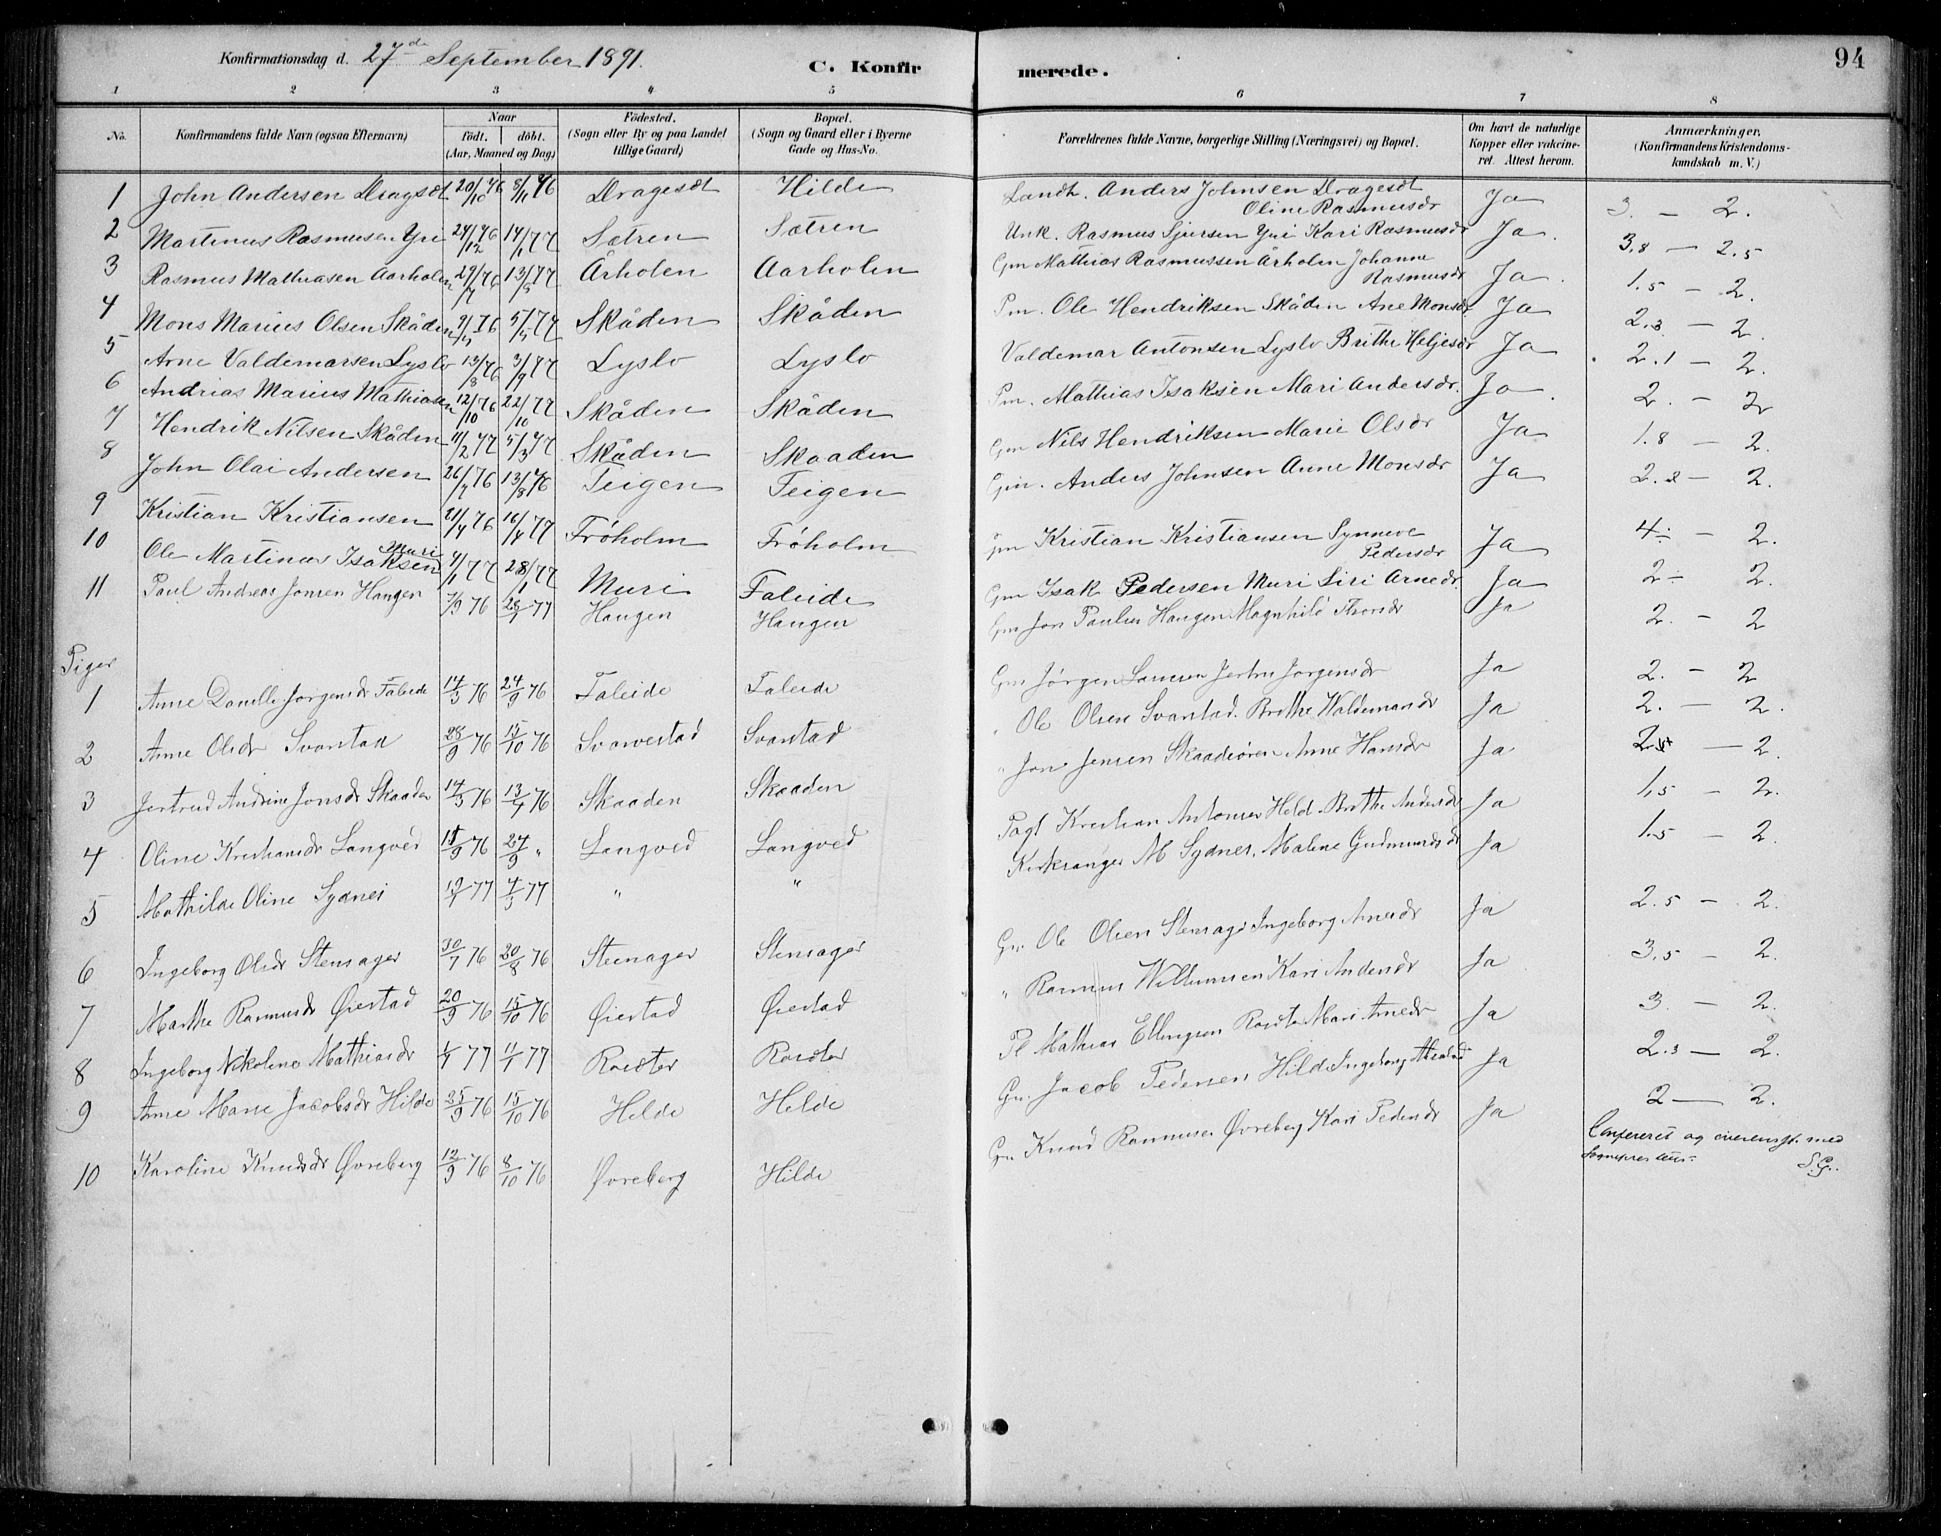 Konfirmationsdag d. 27de September 1891.
C. Konfirmerede.
94
1 2 3 4 5 6 7 8
No. Konfirmandens fulde Navn (ogsaa Efternavn) Naar født. døbt. (Aar, Maaned og Dag) Fødested. (Sogn eller By og paa Landet tillige Gaard) Bopæl. (Sogn og Gaard eller i Byerne Gade og Hus-No. Forældrenes fulde Navne, borgerlige Stilling (Næringsvei) og Bopæl. Om havt de naturlige Kopper eller vakcineret. Attest herom. Anmærkninger. (Konfirmandens Kristendomskundskab m. V.)
1 John Andersen Dragsæt 20/10 76 5/11 76 Dragesæt Hilde Landh. Anders Johnsen Dragesæt Oline Rasmusdr Ja 3. — 2.
2 Martinus Rasmusen Yri 24/12 76 14/1 77 Sætren Sætren Unk. Rasmus Sjursen Yri Kari Rasmusdr Ja. 3.8 — 2.5
3 Rasmus Mathiasen Aarholen 29/7 76 13/8 77 Årholen Aarholen Gm Mathias Rasmussen Årholen Johanne Rasmusdr Ja. 1.5 — 2.
4 Mons Marius Olsen Skåden 76 77 Skåden Skåden Pm. Ole Hendriksen Skåden Ane Monsdr Ja 2.3 — 2.
5 Arne Valdemarsen Lyslo 13/8 76 3/9 77 Lyslo Lyslo Valdemar Antonsen Lyslo Brithe Heljesdr Ja 2.1 — 2.
6 Andrias Marius Mathiasen 12/10 76 22/10 77 Skåden Skåden Pm. Mathias Isaksen Mari Andersdr. Ja. 2. — 2
7 Hendrik Nilsen Skåden 11/2 77 5/3 77 Skåden Skaaden Gm Nils Hendriksen Marie Olsdr Ja 1.8 — 2.
8 John Olai Andersen 26/7 76 13/8 76 Teigen Teigen Gm. Anders Johnsen Anne Monsdr Ja 2.2 — 2.
9 Kristian Kristiansen 21/4 76 16/4 77 Frøholm Frøholm Gm Kristian Kristiansen Synneve Pedersdr Ja 4 — 2.
10 Ole Martinus Isaksen Muri 4/1 77 28/1 77 Muri Faleide Gm Isak Pedersen Muri Siri Arnedr. Ja 2 — 2.
11 Paul Andreas Jonsen Haugen 7/9 76 77 Haugen Haugen Gm Jon Paulsen Haugen Magnhild Thorsdr Ja 2. — 2
Piger
1 Anne Danielle Jørgensdr Faleide 14/3 76 24/9 76 Faleide Faleide Gm Jørgen Larsen Jertru Jørgensdr Ja 2. — 2
2 Anne Olsdr Svarstad 28/9 76 15/10 76 Svarvestad Svarstad " Ole Olsen Svarstad. Brithe Waldemarsdr Ja 2. — 2.
3 Jertrud Andrine Jonsdr Skaaden 14/3 76 13/4 76 Skaaden Skaaden " Jon Jensen Skaadeøren Anne Hansdr Ja — 2.
4 Oline Kristiansdr Langved 76 24/9 " Langved Langved Pagt Kristian Antonsen Hold. Brithe Andersdr Ja 1,5 — 2.
5 Mathilde Oline Sydnes 77 77 " " Kirksanger M Sydnes. Malene Gudmundsdr Ja 1.5 — 2.
6 Ingeborg Olsdr Stensager 30/7 76 20/8 76 Steenager Stensager Gm Ole Olsen Stensager Ingeborg Arnesdr Ja 2.5 — 2.
7 Marthe Rasmusdr Øiestad 20/9 76 15/10 76 Øiestad Øiestad " Rasmus Willumsen Kari Andersdr Ja 3,5 — 2.
8 Ingeborg Nikoline Mathiasdr 77 77 Rosæter Rosæter Pl Mathias Ellingsen Rosæter Mari Arnedr Ja 3. — 2.
9 Anne Marie Jacobsdr Hilde 25/9 76 15/10 76 Hilde Hilde Gm. Jacob Pedersen Hilde Ingeborg Ja 2.3 — 2.
10 Karoline Knudsdr Øvreberg 12/9 76 8/10 76 Øvreberg Hilde Gm Knud Rasmusen Øvreberg Kari Pedersdr Ja 2 — 2.
Confereret og overensst. med
Sognepresten
S.G.